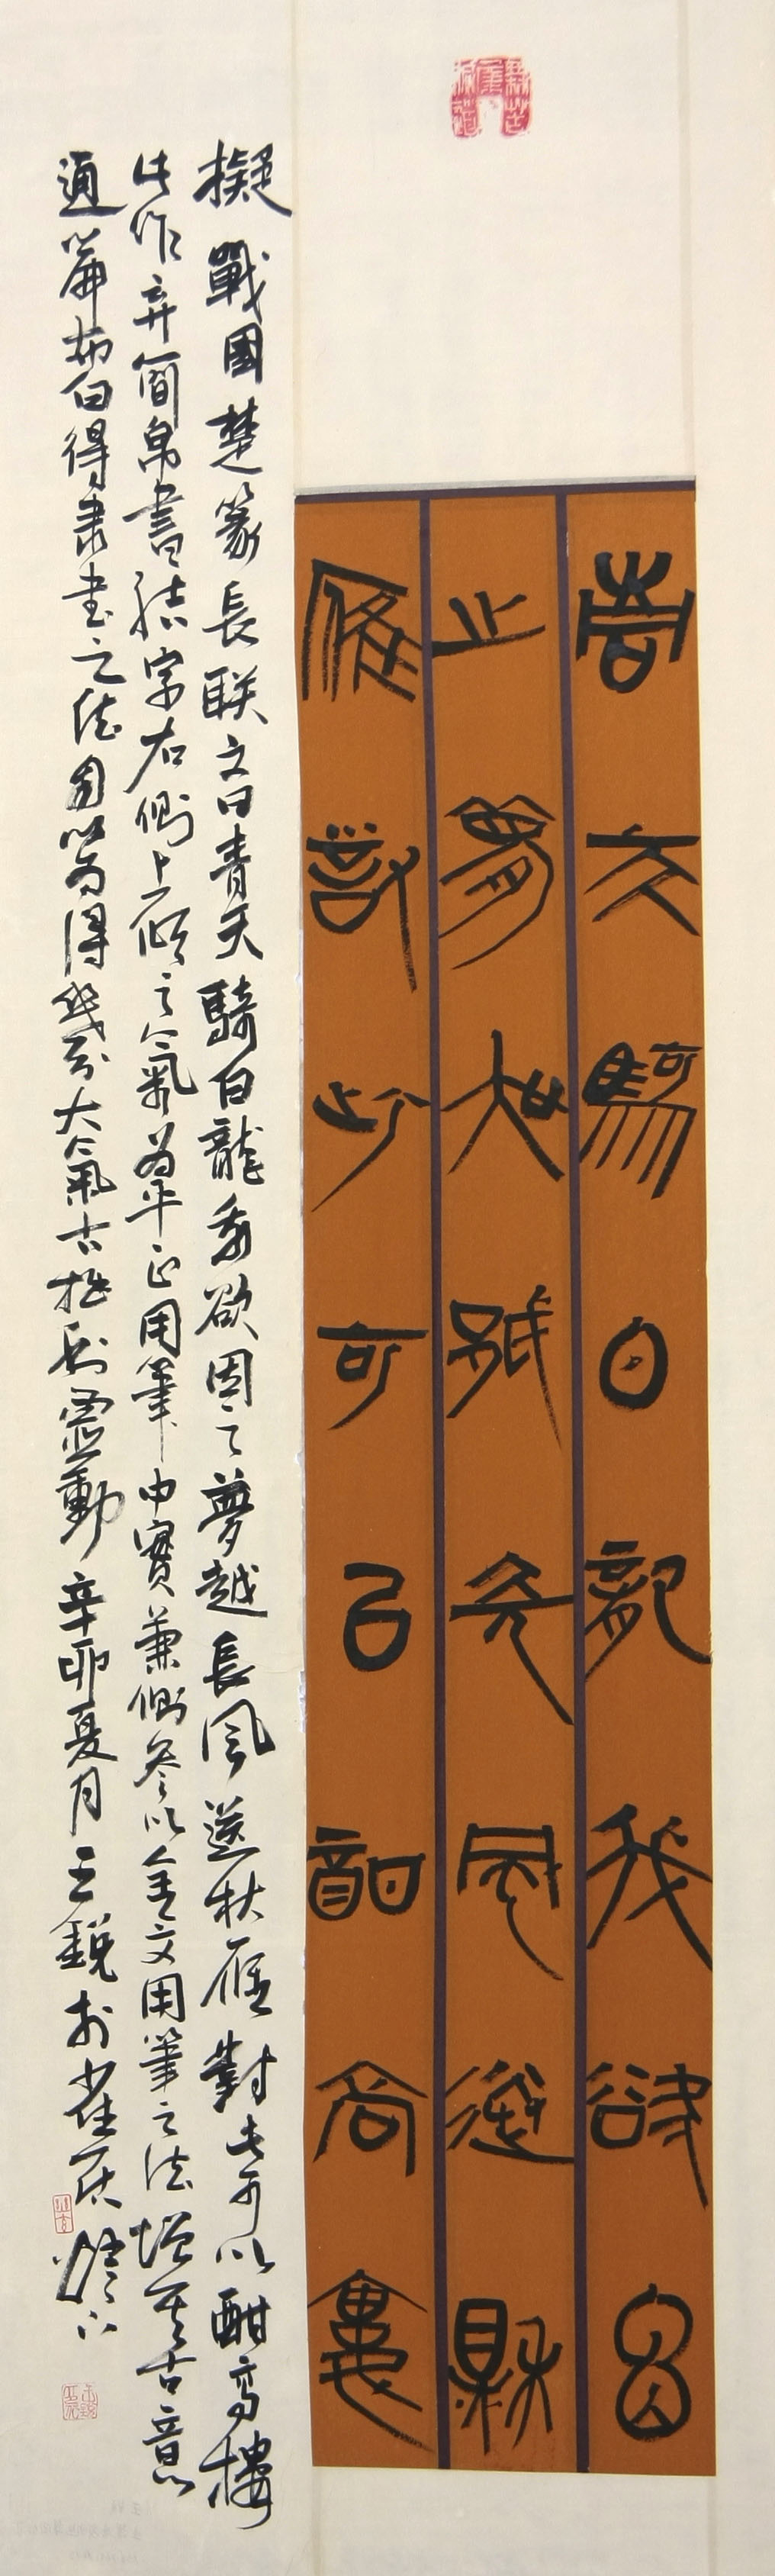 青天騎白龍我欲因
之夢吳越長風送秋
雁對此可以酣高樓
擬戰國楚篆長联文曰青天騎白龍我欲因之夢越長風送秋雁對此可以酣高樓
此作弃简帛書結字右側上傾之氣為平正用筆中實兼側參以金文用筆之法增其古意
通篇布白得隶書之法自以為得幾分大氣古拙靈動辛卯夏月王銳於雀居燈下